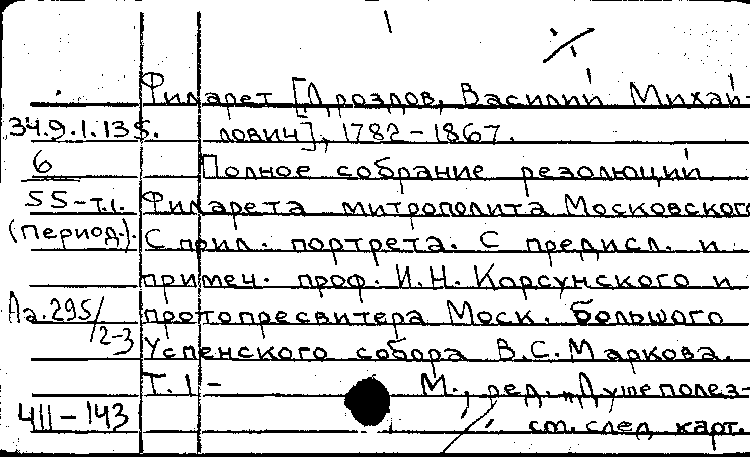 Филарет [Дроздов, Василий Михай-
34.9.1.135. лович], 1782-1867.
6 Полное собрание резолюций
55-т.1. Филарета митрополита Московского
(период.). С прил. портрета. С предисл. и
примеч. проф. И.Н. Корсунского и
Аа.295/2-3 протопресвитера Моск. большого
Успенского собора В.С. Маркова.
Т.1 - М., ред. „Душеполез-
411-143 см. след. карт.